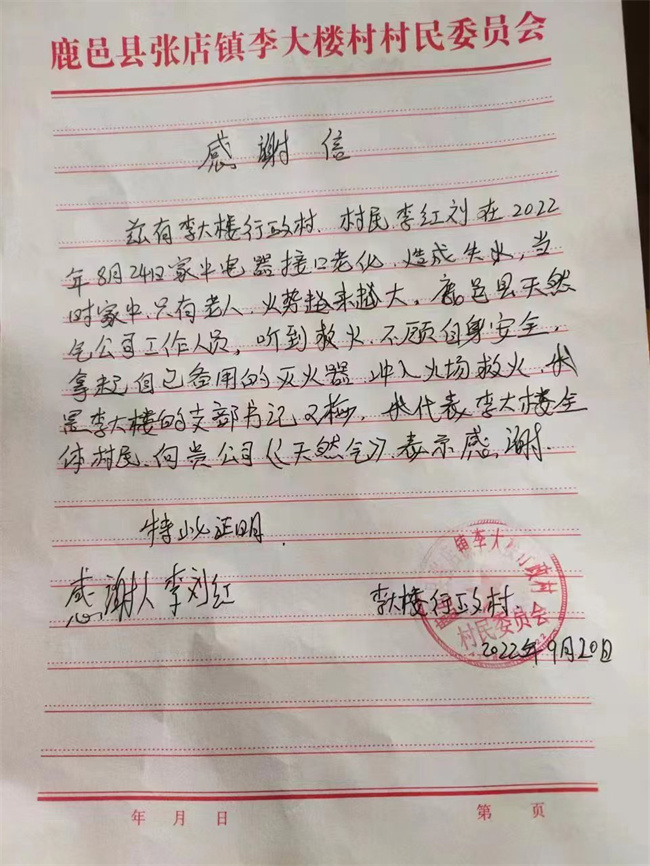 鹿邑县张店镇李大楼村村民委员会
感谢信
兹有李大楼行政村、村民李红刘在2022
年8月24日家中电器接口老化、造成失火,当
时家中只有老人、火势越来越大,鹿邑县天然
气公司工作人员,听到救火、不顾自身安全,
拿起自己备用的灭火器冲入火场救火、
是李大楼的支部书记 代表李大楼全
体村民、向贵公司《天然气》表示感谢.
特此证明.
感谢人李刘红
李大楼行政村
镇李大 行政村
村民委员会
2022年9月20日
年 月 日
第 页